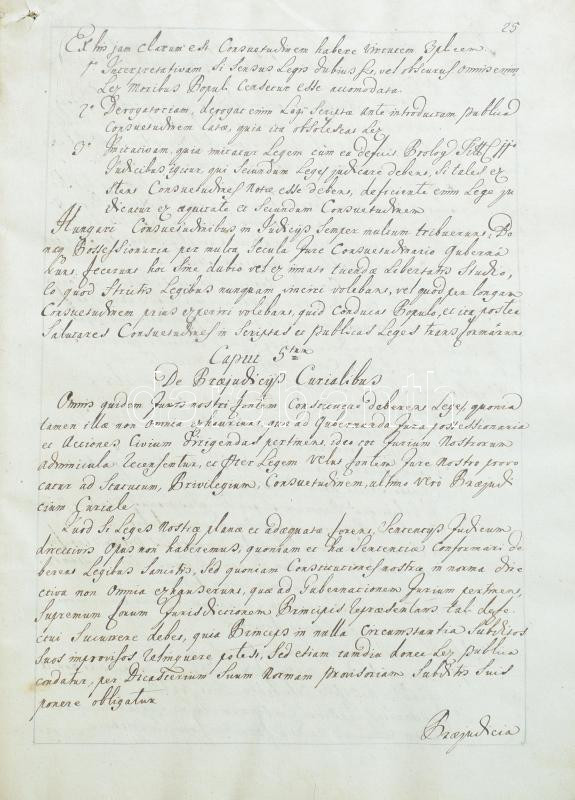 25
Ex his jam clarum est. Consuetudinem habere virtutem 3plicem
1o Interpretativam, si sensus Legis dubius sit, vel obscurus omnis enim
Lex Moribus Populi censetur esse accomodata.
2o Derogatoriam, derogat enim Legi Scriptæ ante introductam publica
Consuetudinem latæ, quia ita obsolescat Lex
3o Imitativam, quia imitatur Legem cum ea deficit. Prolog.
Judicibus igitur, qui secundum Leges judicare debent, si tales ex
stant Consuetudines Notæ esse debent, deficiente enim Lege ju
dicatur ex æquitate et secundum Consuetudinem
Hungari Consuetudinibus in Judicijs semper multum tribuerunt, Bo
na Possessionaria per multa Secula Jure Consuetudinario Guberna
runt, fecerunt hoc sine dubio vel ex innato tuendæ Libertatis Studio,
eo quod strictis Legibus nunquam vinciri volebant, vel quod per longam
Consuetudinem prius experiri volebant, quid conducat Populo, et ita postea
Salutares Consuetudines in Scriptas et publicas Leges transformarunt
Caput 5tum
De Præjudicijs Curialibus
Omnis quidem Juris nostri fontem Constituere deberent Leges, quoniam
tamen illæ non omnia exhauriunt, quæ ad Gubernanda Jura possessionaria
et Actiones Civium Dirigendas pertinent, ideo tot Jurium Nostrorum
adminicula recensentur, et præter Legem velut fontem Jure Nostro provo
catur ad Statutum, Privilegium, Consuetudinem, ultimo vero Præjudi
cium Curiale
Quod si Leges Nostræ planæ et adæquatæ forent, Sententijs Judicum
directivis opus non haberemus, quoniam et hæ Sententiæ conformari de
berent Legibus Sancitis, sed quoniam Constitutiones nostræ in norma dire
ctiva non omnia exhauserunt, quæ ad Gubernationem Jurium pertinent,
Supremum forum Jurisdictionem Principis repræsentans tali defe
ctui Succurrere debet, quia Princeps in nulla circumstantia Subditos
suos improvisos relinquere potest, sed etiam tamdiu donec Lex publica
condatur, per Dicasterium Suum Normam provisoriam Subditis Suis
ponere obligatur
Præjudicia